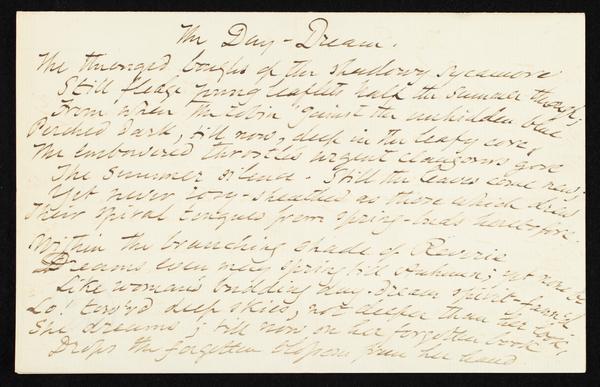 The Day-Dream.
The thronged boughs of the shadowy sycamore
Still fledge young leaflets half the summer through;
From when the robin 'gainst the unhidden blue
Perched dark, till now, deep in the leafy core,
The embowered throstle's urgent clangours gore
The summer silence. Still the leaves come new;
Yet never rosy-sheathed as those which drew
Their spiral tongues from spring-buds heretofore.
Within the branching shade of Reverie
Dreams even may spring till Autumn; yet none be
Like woman's budding day-dream spirit-fann'd.
Lo! tow'rd deep skies, not deeper than her look,
She dreams; till now on her forgotten book
Drops the forgotten blossom from her hand.